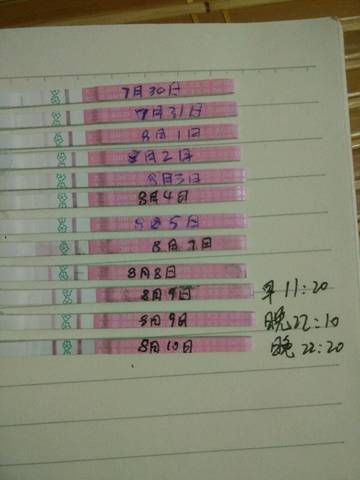 7月30日
7月31日
8月1日
8月2日
8月3日
8月4日
8月5日
8月7日
8月8日
8月9日 早 11:20
8月9日 晚 22:10
8月10日 晚 22:20